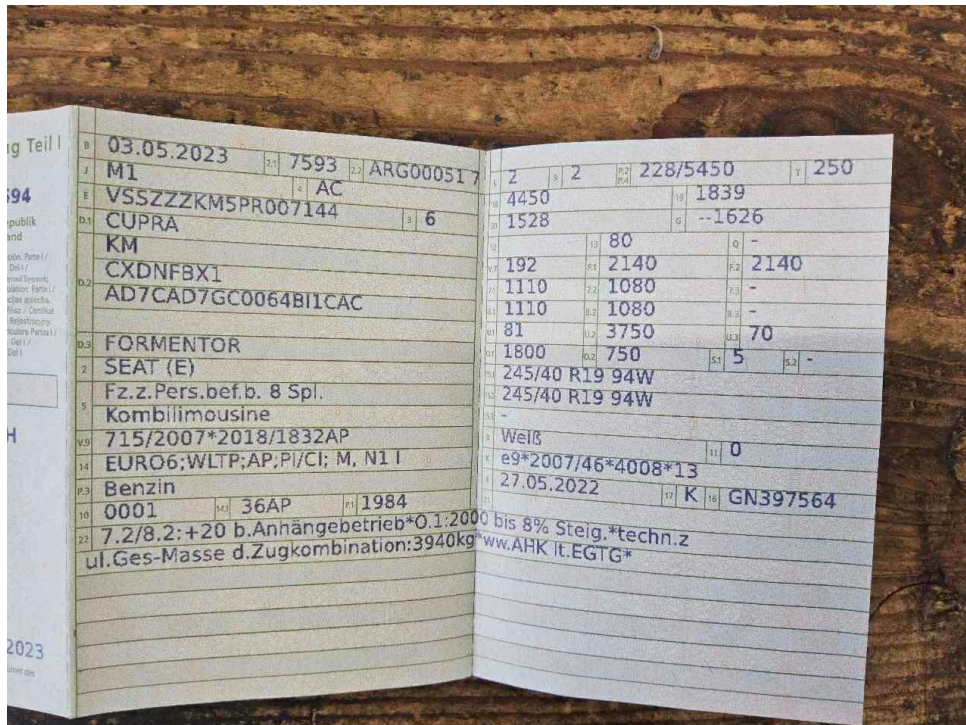 g Teil I
594
publik
and
2023
B 03.05.2023 2.1 7593 2.2 ARG00051 7
J M1 4 AC
E VSSZZZKM5PR007144 3 6
D.1 CUPRA
KM
D.2 CXDNFBX1
AD7CAD7GC0064BI1CAC
D.3 FORMENTOR
2 SEAT (E)
5 Fz.z.Pers.bef.b. 8 Spl.
Kombilimousine
V.9 715/2007*2018/1832AP
14 EURO6;WLTP;AP;PI/CI; M, N1 I
P.3 Benzin
10 0001 14.1 36AP P.1 1984
22 7.2/8.2:+20 b.Anhängebetrieb*O.1:2000 bis 8% Steig.*techn.z
ul.Ges-Masse d.Zugkombination:3940kg*ww.AHK lt.EGTG*
L 2 9 2 P.2 P.4 228/5450 T 250
18 4450 19 1839
20 1528 G --1626
12 13 80 Q -
V.7 192 F.1 2140 F.2 2140
7.1 1110 7.2 1080 7.3 -
8.1 1110 8.2 1080 8.3 -
U.1 81 U.2 3750 U.3 70
O.1 1800 O.2 750 S.1 5 S.2 -
15.1 245/40 R19 94W
15.2 245/40 R19 94W
15.3 -
R Weiß 11 0
K e9*2007/46*4008*13
6 27.05.2022 17 K 16 GN397564
21